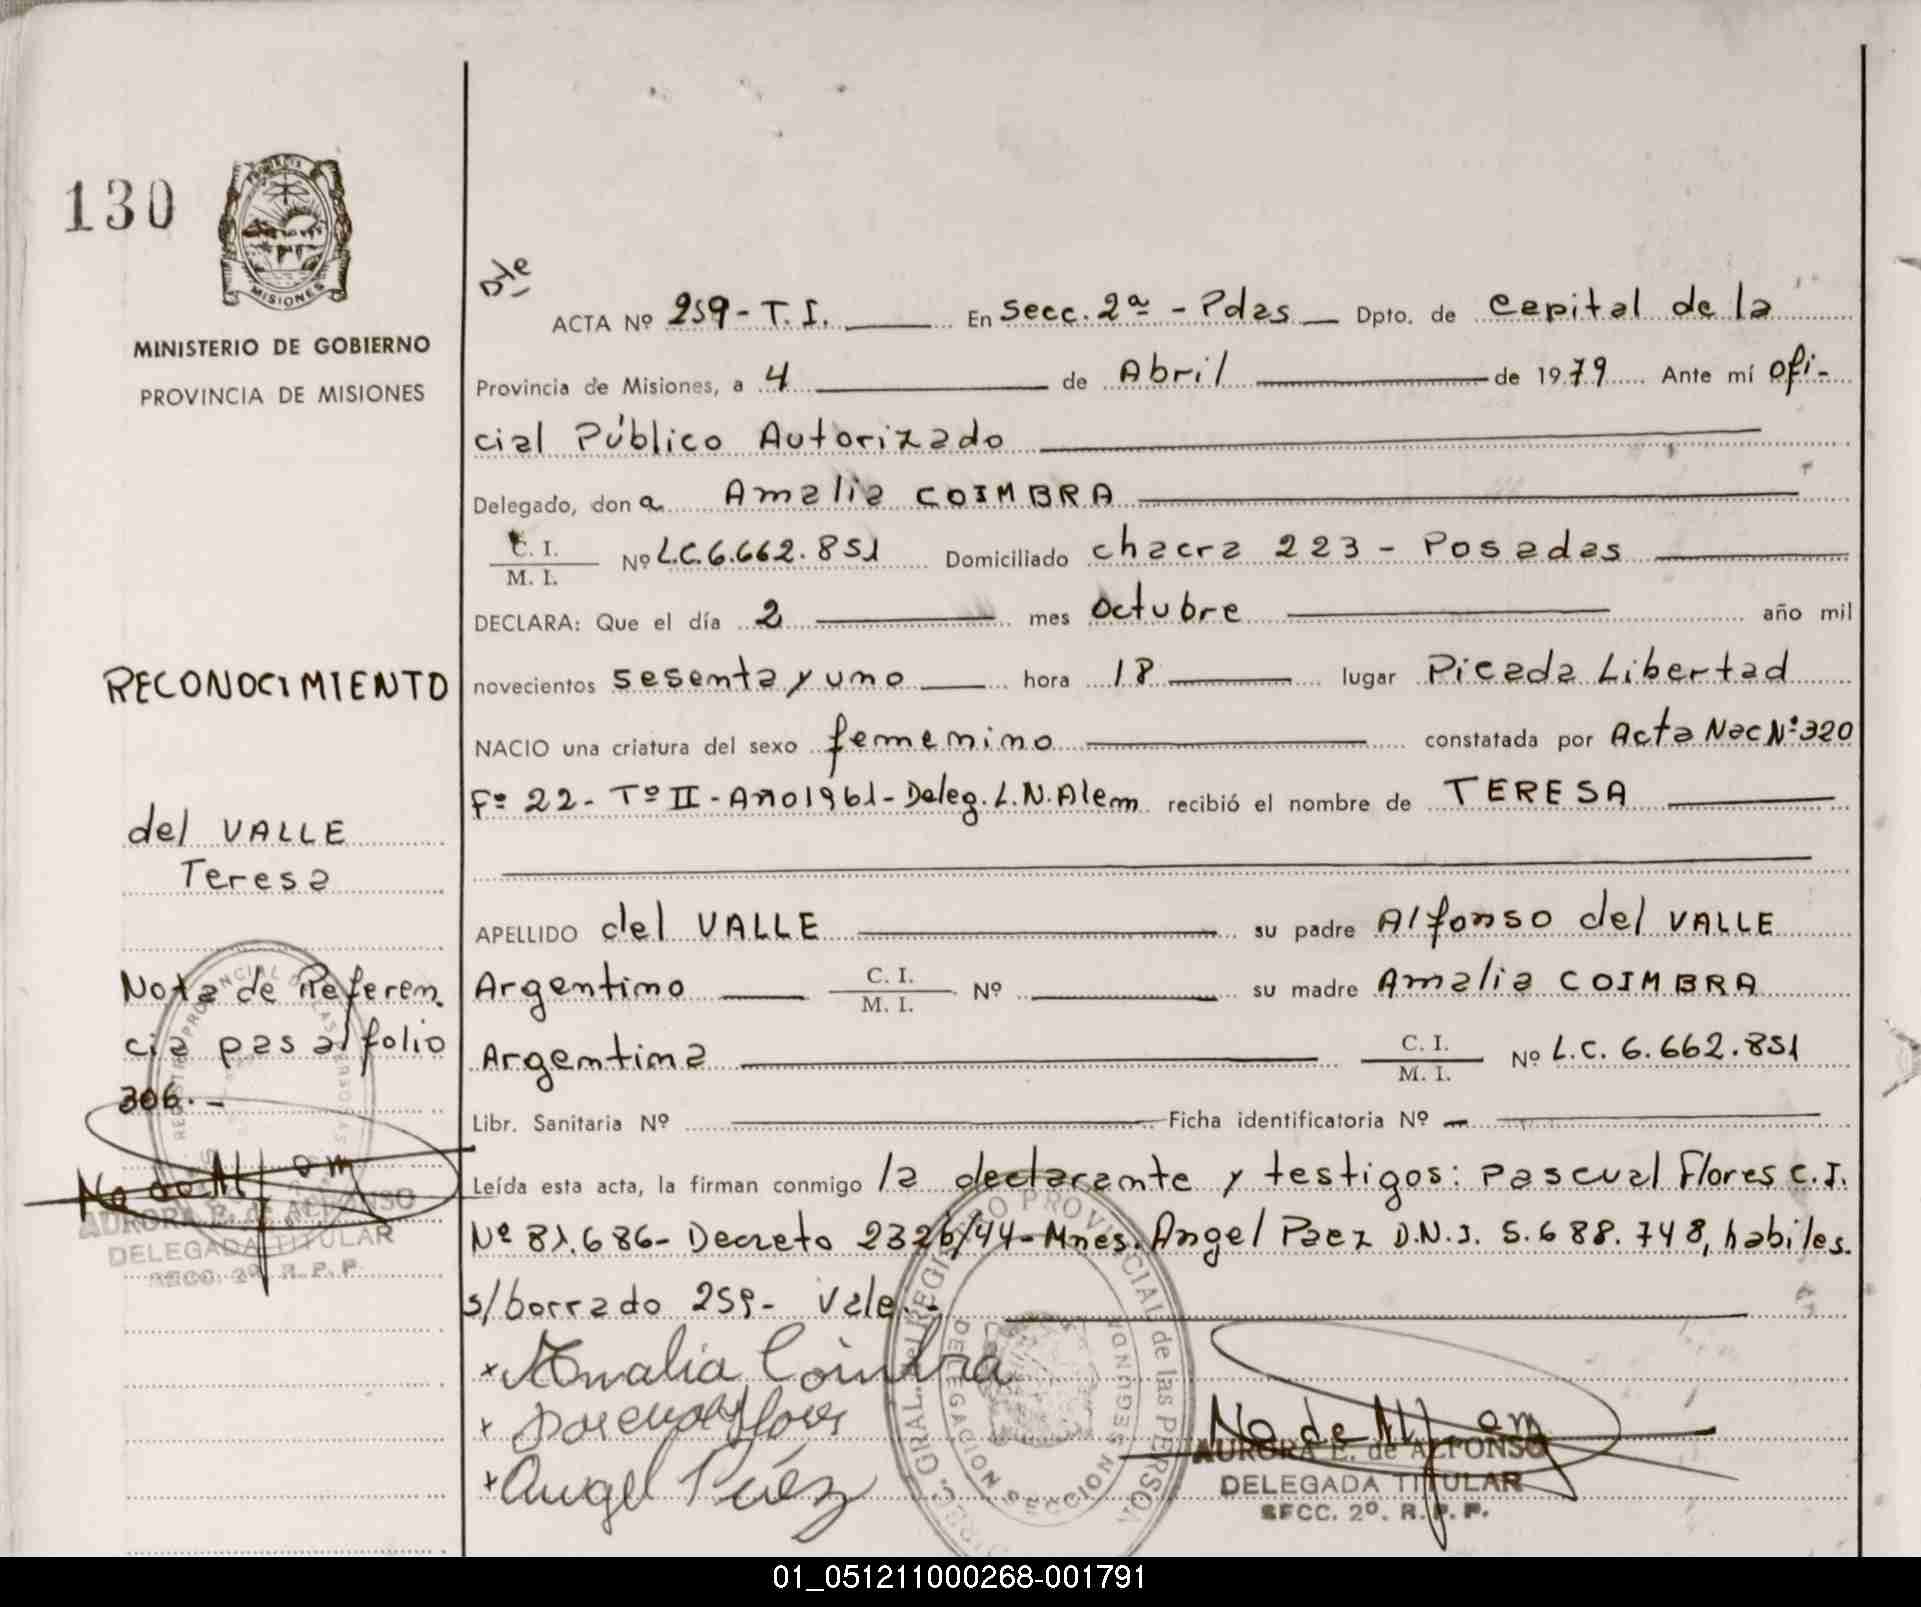 130
MISIONES
MINISTERIO DE GOBIERNO
PROVINCIA DE MISIONES
RECONOCIMIENTO
del VALLE
Teresa
Nota de Referen
cia pasa al folio
306.-
AURORA E. de ALFONSO
DELEGADA TITULAR
SECC. 2º. R.P.P.
Dte
ACTA Nº 259-T.I. En Secc. 2ª - Pdas Dpto. de Capital de la
Provincia de Misiones, a 4 de Abril de 1979 Ante mí ofi-
cial Público Autorizado
Delegado, don a Amalia COIMBRA
C. I.
M. I. Nº L.C. 6.662.851 Domiciliado chacra 223 - Posadas
DECLARA: Que el día 2 mes octubre año mil
novecientos sesenta y uno hora 18 lugar Picada Libertad
NACIO una criatura del sexo femenino constatada por Acta Nac Nº 320
Fº 22 - Tº II - Año 1961 - Deleg. L.N. Alem recibió el nombre de TERESA
APELLIDO del VALLE su padre Alfonso del VALLE
Argentino C. I. M. I. Nº su madre Amalia COIMBRA
Argentina C. I. M. I. Nº L.C. 6.662.851
Libr. Sanitaria Nº Ficha identificatoria Nº
Leída esta acta, la firman conmigo la declarante y testigos: Pascual Flores C.I.
Nº 81.686 - Decreto 2326/44 - Mnes. Angel Paez D.N.I. 5.688.748, habiles.
s/borrado 259 - Vale.-
x Amalia Coimbra
x Pascual Flores
x Angel Páez
REGISTRO PROVINCIAL de las PERSONAS
DELEGACION SECCION SEGUNDA
AURORA E. de ALFONSO
DELEGADA TITULAR
SECC. 2º. R.P.P.
01_051211000268-001791